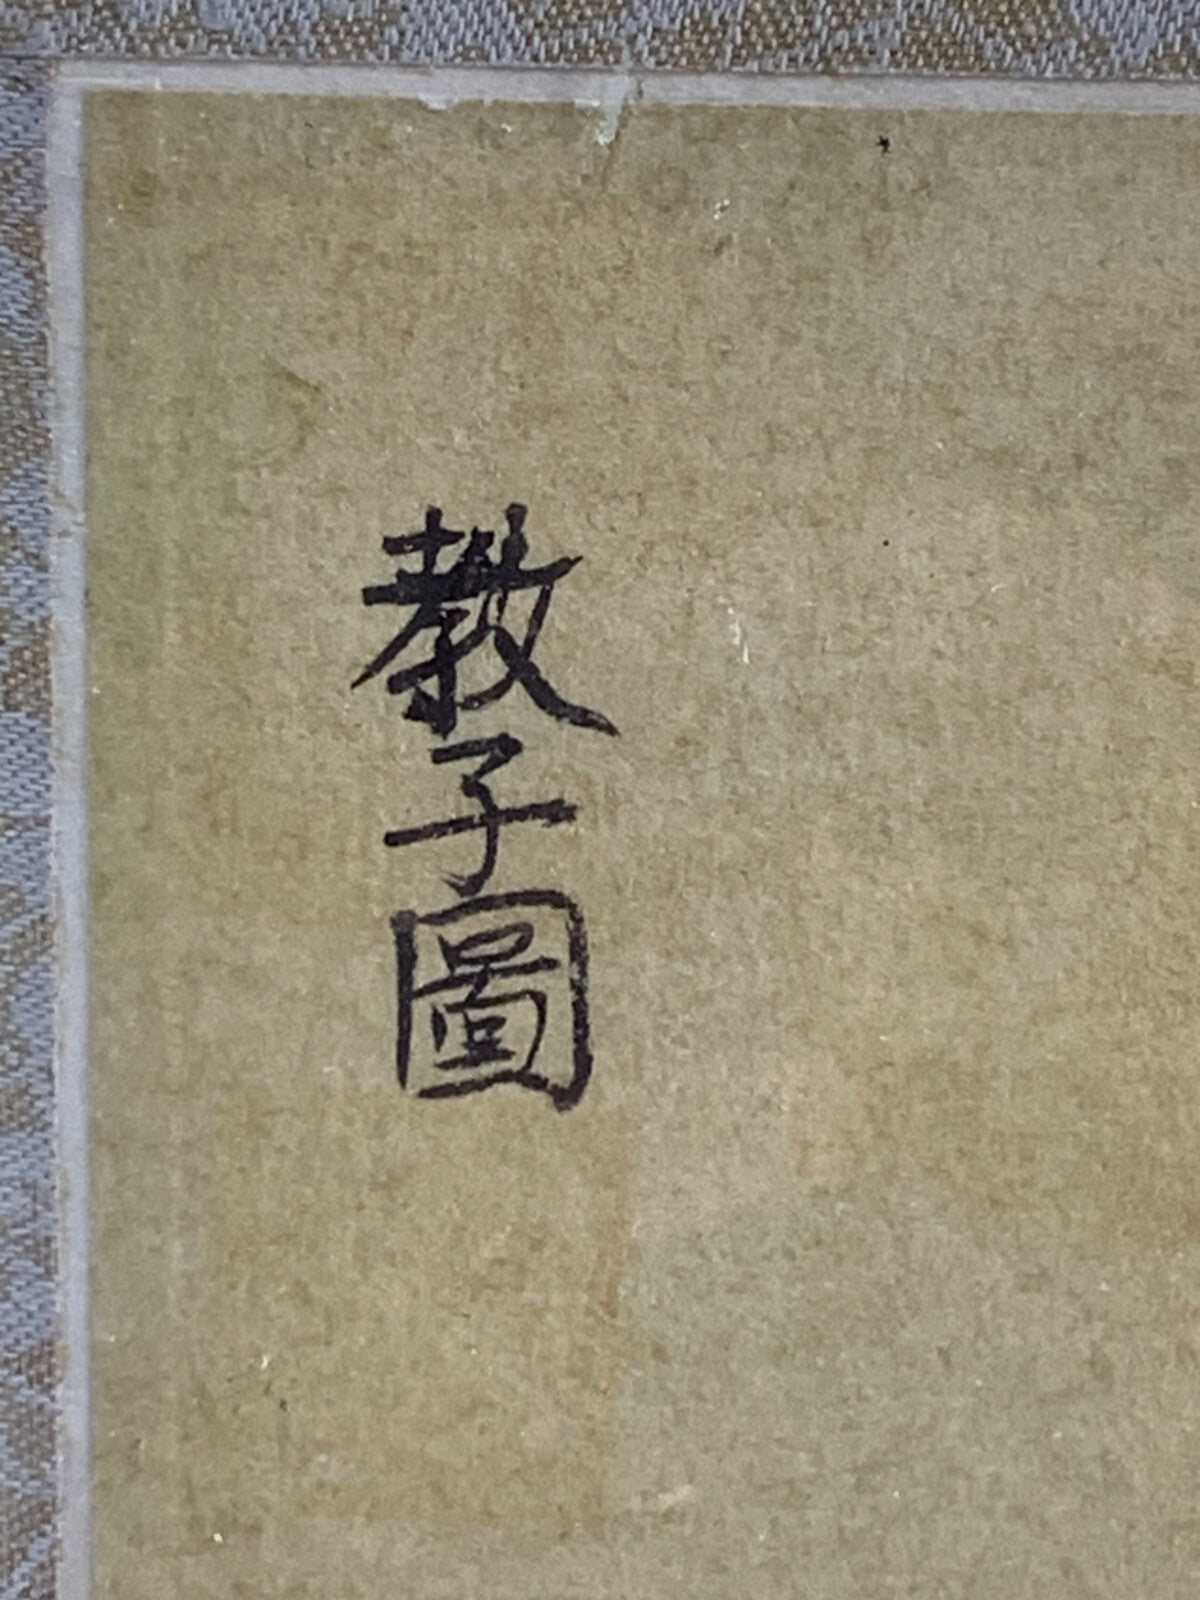 教子圖